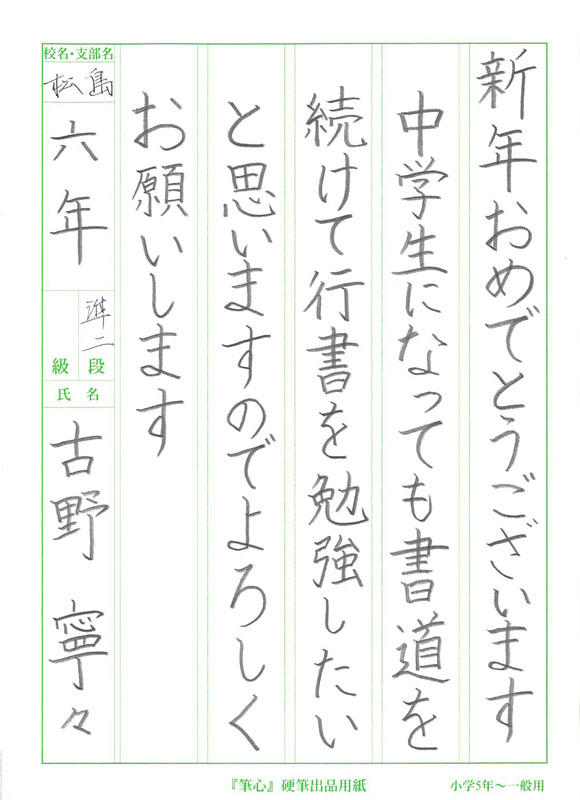 新年おめでとうございます
中学生になっても書道を
続けて行書を勉強したい
と思いますのでよろしく
お願いします
校名・支部名
松島
六年
準二
級 段
氏名
古野 寧々
『筆心』硬筆出品用紙
小学5年〜一般用